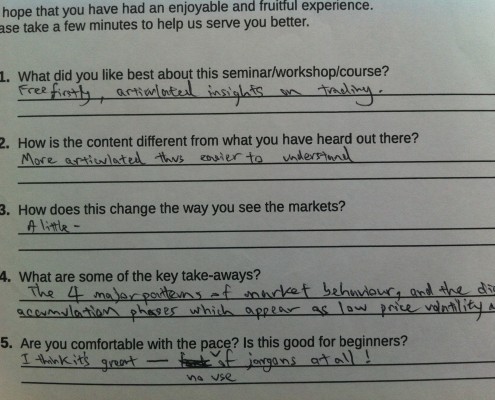 hope that you have had an enjoyable and fruitful experience.
ase take a few minutes to help us serve you better.
1. What did you like best about this seminar/workshop/course?
Free firstly, articulated insights on trading.
2. How is the content different from what you have heard out there?
More articulated thus easier to understand
3. How does this change the way you see the markets?
A little -
4. What are some of the key take-aways?
The 4 major patterns of market behaviour, and the di
accumulation phases which appear as low price volatility
5. Are you comfortable with the pace? Is this good for beginners?
I think it's great — of jargons at all !
no use